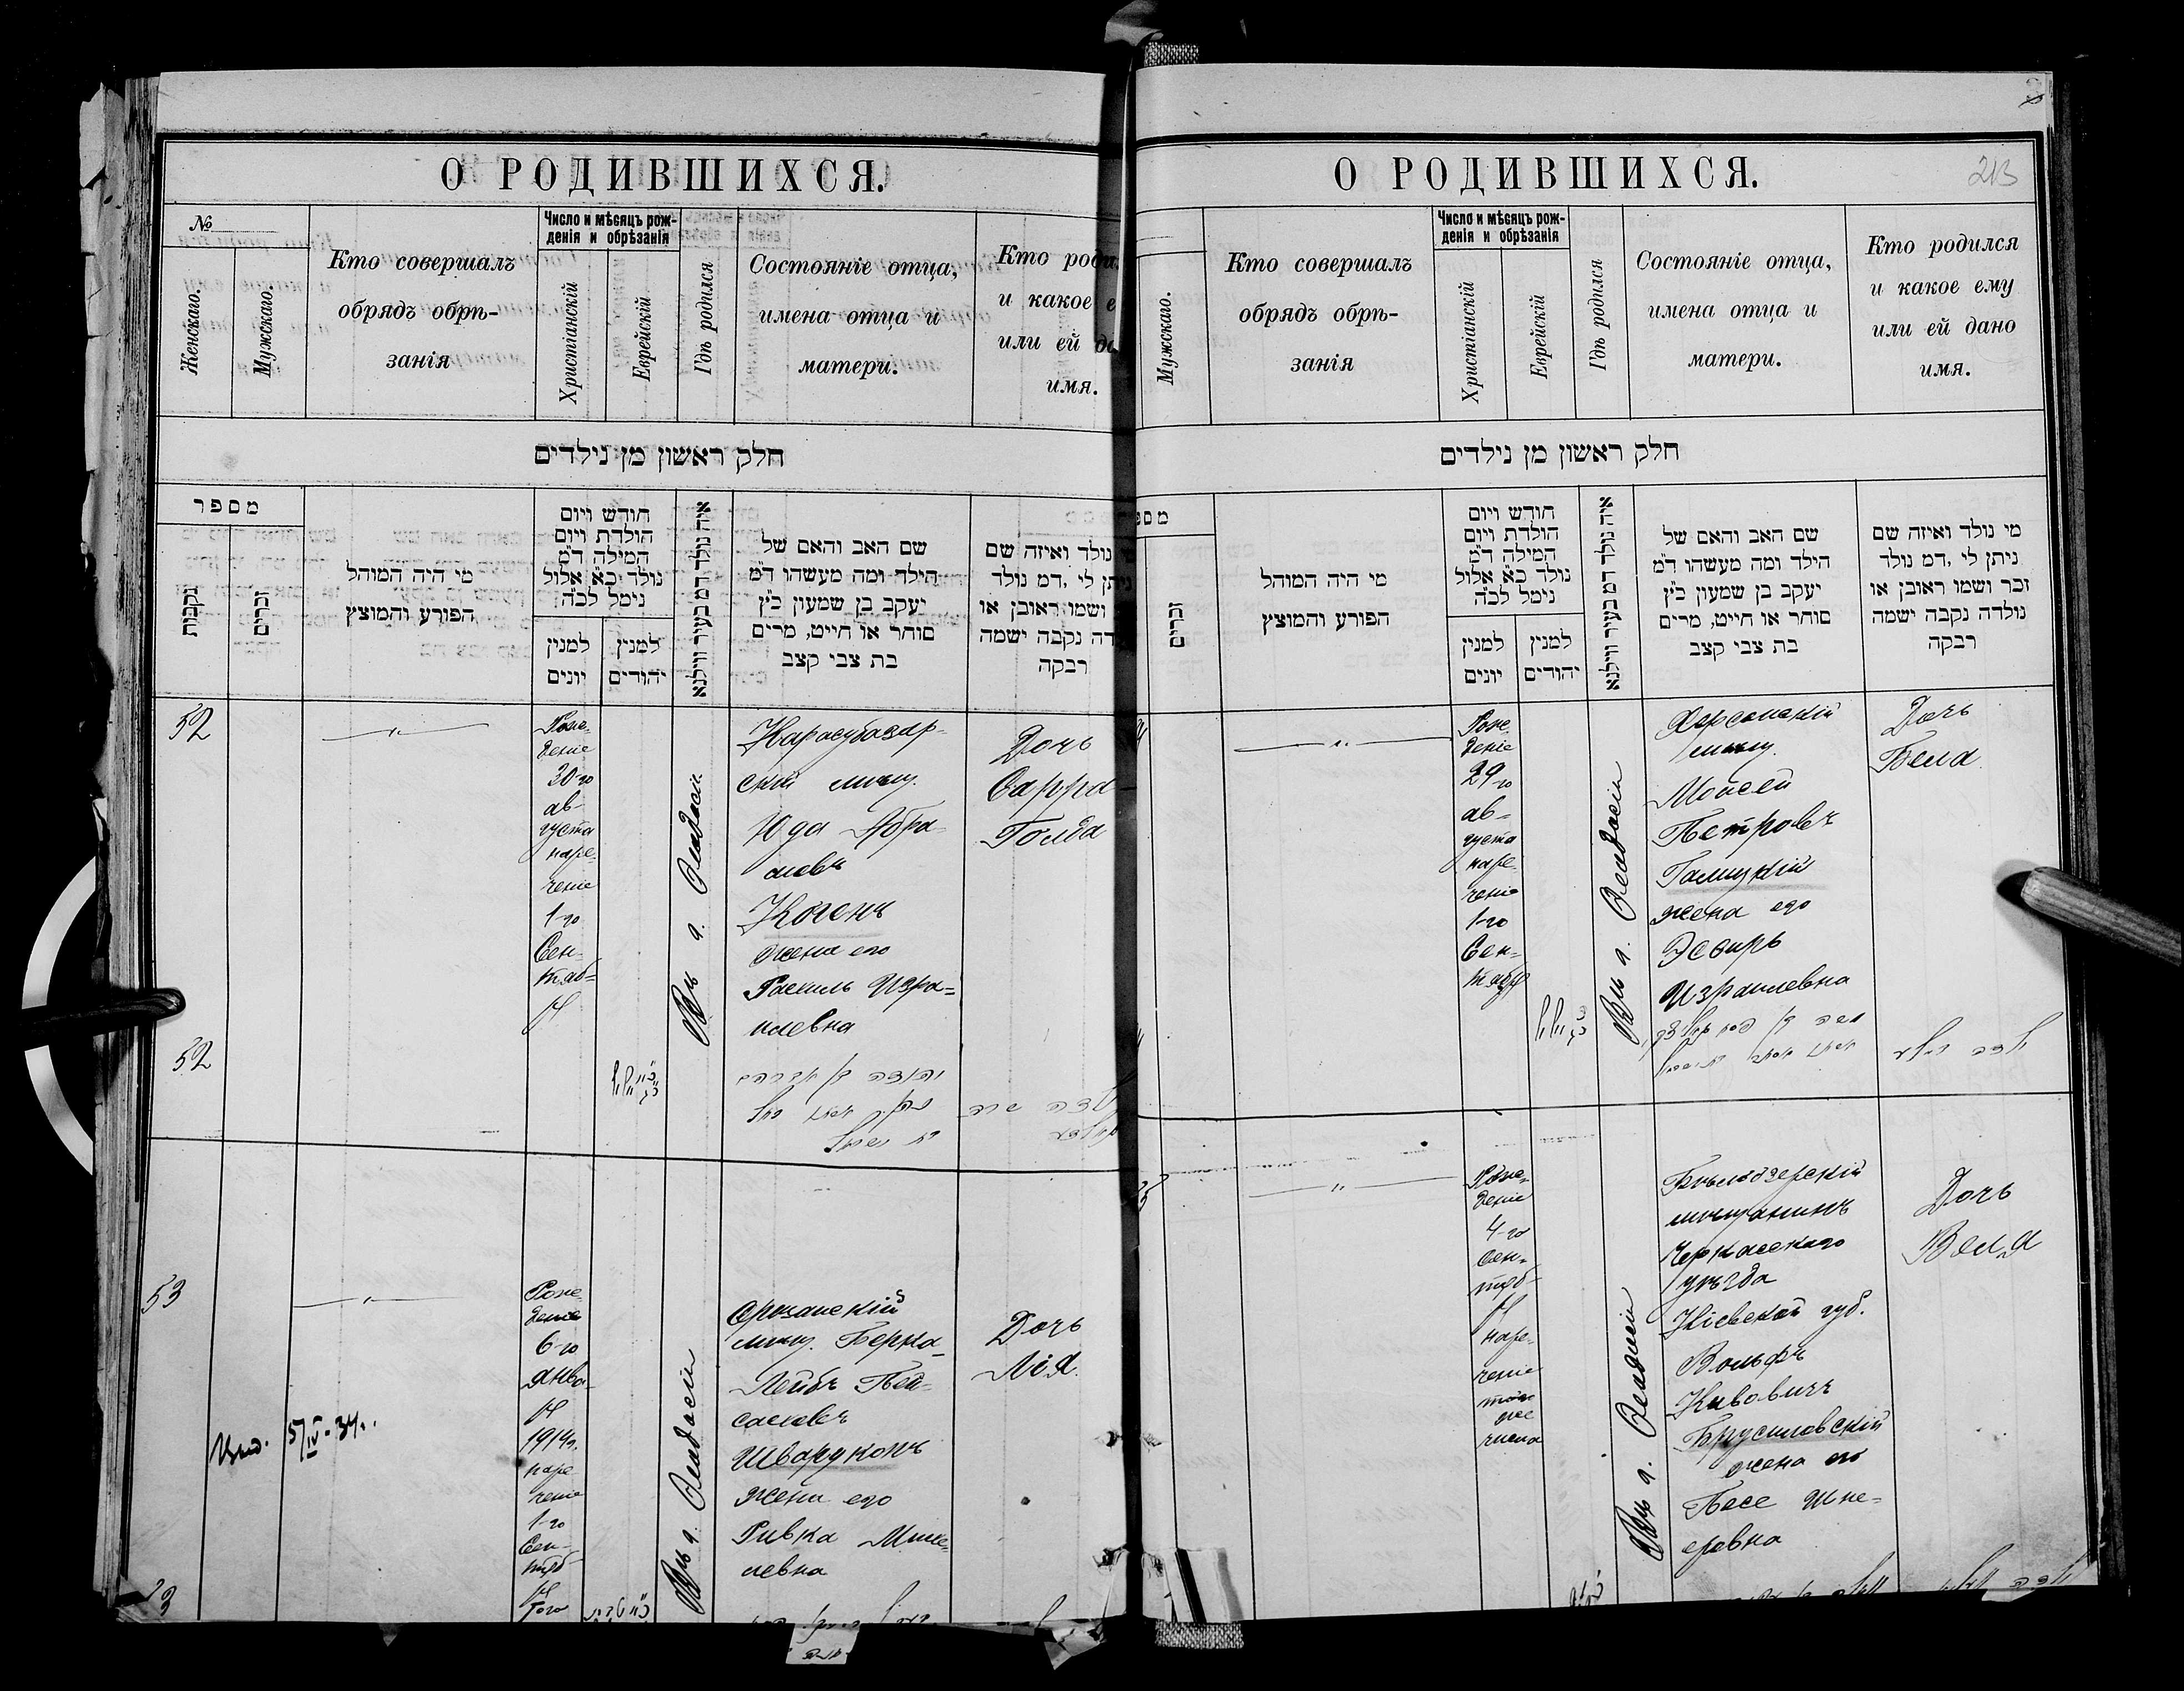 О РОДИВШИХСЯ.
№
Женскаго.
Мужскаго.
Кто совершалъ
обрядъ обрѣ-
занія
Число и мѣсяцъ рож-
денія и обрѣзанія
Христіанскій
Еврейскій
Гдѣ родился
Состояніе отца,
имена отца и
матери.
Кто роди
и какое е
или ей да
имя.
חלק ראשון מן נילדים
מספר
נקבות
זכרים
מי היה המוהל
הפורע והמוצץ
חודש ויום
הולדת ויום
המילה ד״מ
נולד כ״א אלול
נימל לכ״ה
למנין
יונים
למנין
יהודים
איה נולד דמ בעיר ווילנא
שם האב והאם של
הילד ומה מעשהו ד״מ
יעקב בן שמעון כ״ץ
סוחר או חייט, מרים
בת צבי קצב
נולד ואיזה שם
ניתן לי ,דמ נולד
ושמו ראובן או
דה נקבה ישמה
רבקה
52
Рож-
деніе
30-го
ав-
густа
наре-
ченіе
1-го
Сен-
тяб-
ря
Въ г. Ѳеодосіи
Карасубазар-
скій мѣщ.
Юда Абра-
мовъ
Когенъ
жена его
Рахиль Изра-
илевна
Дочь
Сарра
Голда
52
יהודה בן אברהם
53
5/IV-34.
Рож-
деніе
6-го
Янва-
ря
1914г.
наре-
ченіе
1-го
Сен-
тяб-
ря
того
Въ г. Ѳеодосіи
Оршанскій
мѣщ. Берка-
Лейбъ Пей-
саховъ
Шварцконъ
жена его
Ривка Мише-
левна
Дочь
Лія.
О РОДИВШИХСЯ.
213
Мужскаго.
Кто совершалъ
обрядъ обрѣ-
занія
Число и мѣсяцъ рож-
денія и обрѣзанія
Христіанскій
Еврейскій
Гдѣ родился
Состояніе отца,
имена отца и
матери.
Кто родился
и какое ему
или ей дано
имя.
חלק ראשון מן נילדים
מספ
זכרים
מי היה המוהל
הפורע והמוצץ
חודש ויום
הולדת ויום
המילה ד״מ
נולד כ״א אלול
נימל לכ״ה
למנין
יונים
למנין
יהודים
איה נולד דמ בעיר ווילנא
שם האב והאם של
הילד ומה מעשהו ד״מ
יעקב בן שמעון כ״ץ
סוחר או חייט, מרים
בת צבי קצב
מי נולד ואיזה שם
ניתן לי ,דמ נולד
זכר ושמו ראובן או
נולדה נקבה ישמה
רבקה
Рож-
деніе
29-го
ав-
густа
наре-
ченіе
1-го
Сен-
тября
Въ г. Ѳеодосіи
Херсонскій
мѣщ.
Мойсей
Петровъ
Галицкій
жена его
Эсѳирь
Израилевна
Дочь
Бела
Рож-
деніе
4-го
Сен-
тяб-
ря
наре-
ченіе
того
же
числа
Въ г. Ѳеодосіи
Бѣлозерскій
мѣщанинъ
Черкасскаго
уѣзда
Кіевской губ.
Вольфъ
Кивовичъ
Брусиловскій
жена его
Песе Шне-
еровна
Дочь
Веля